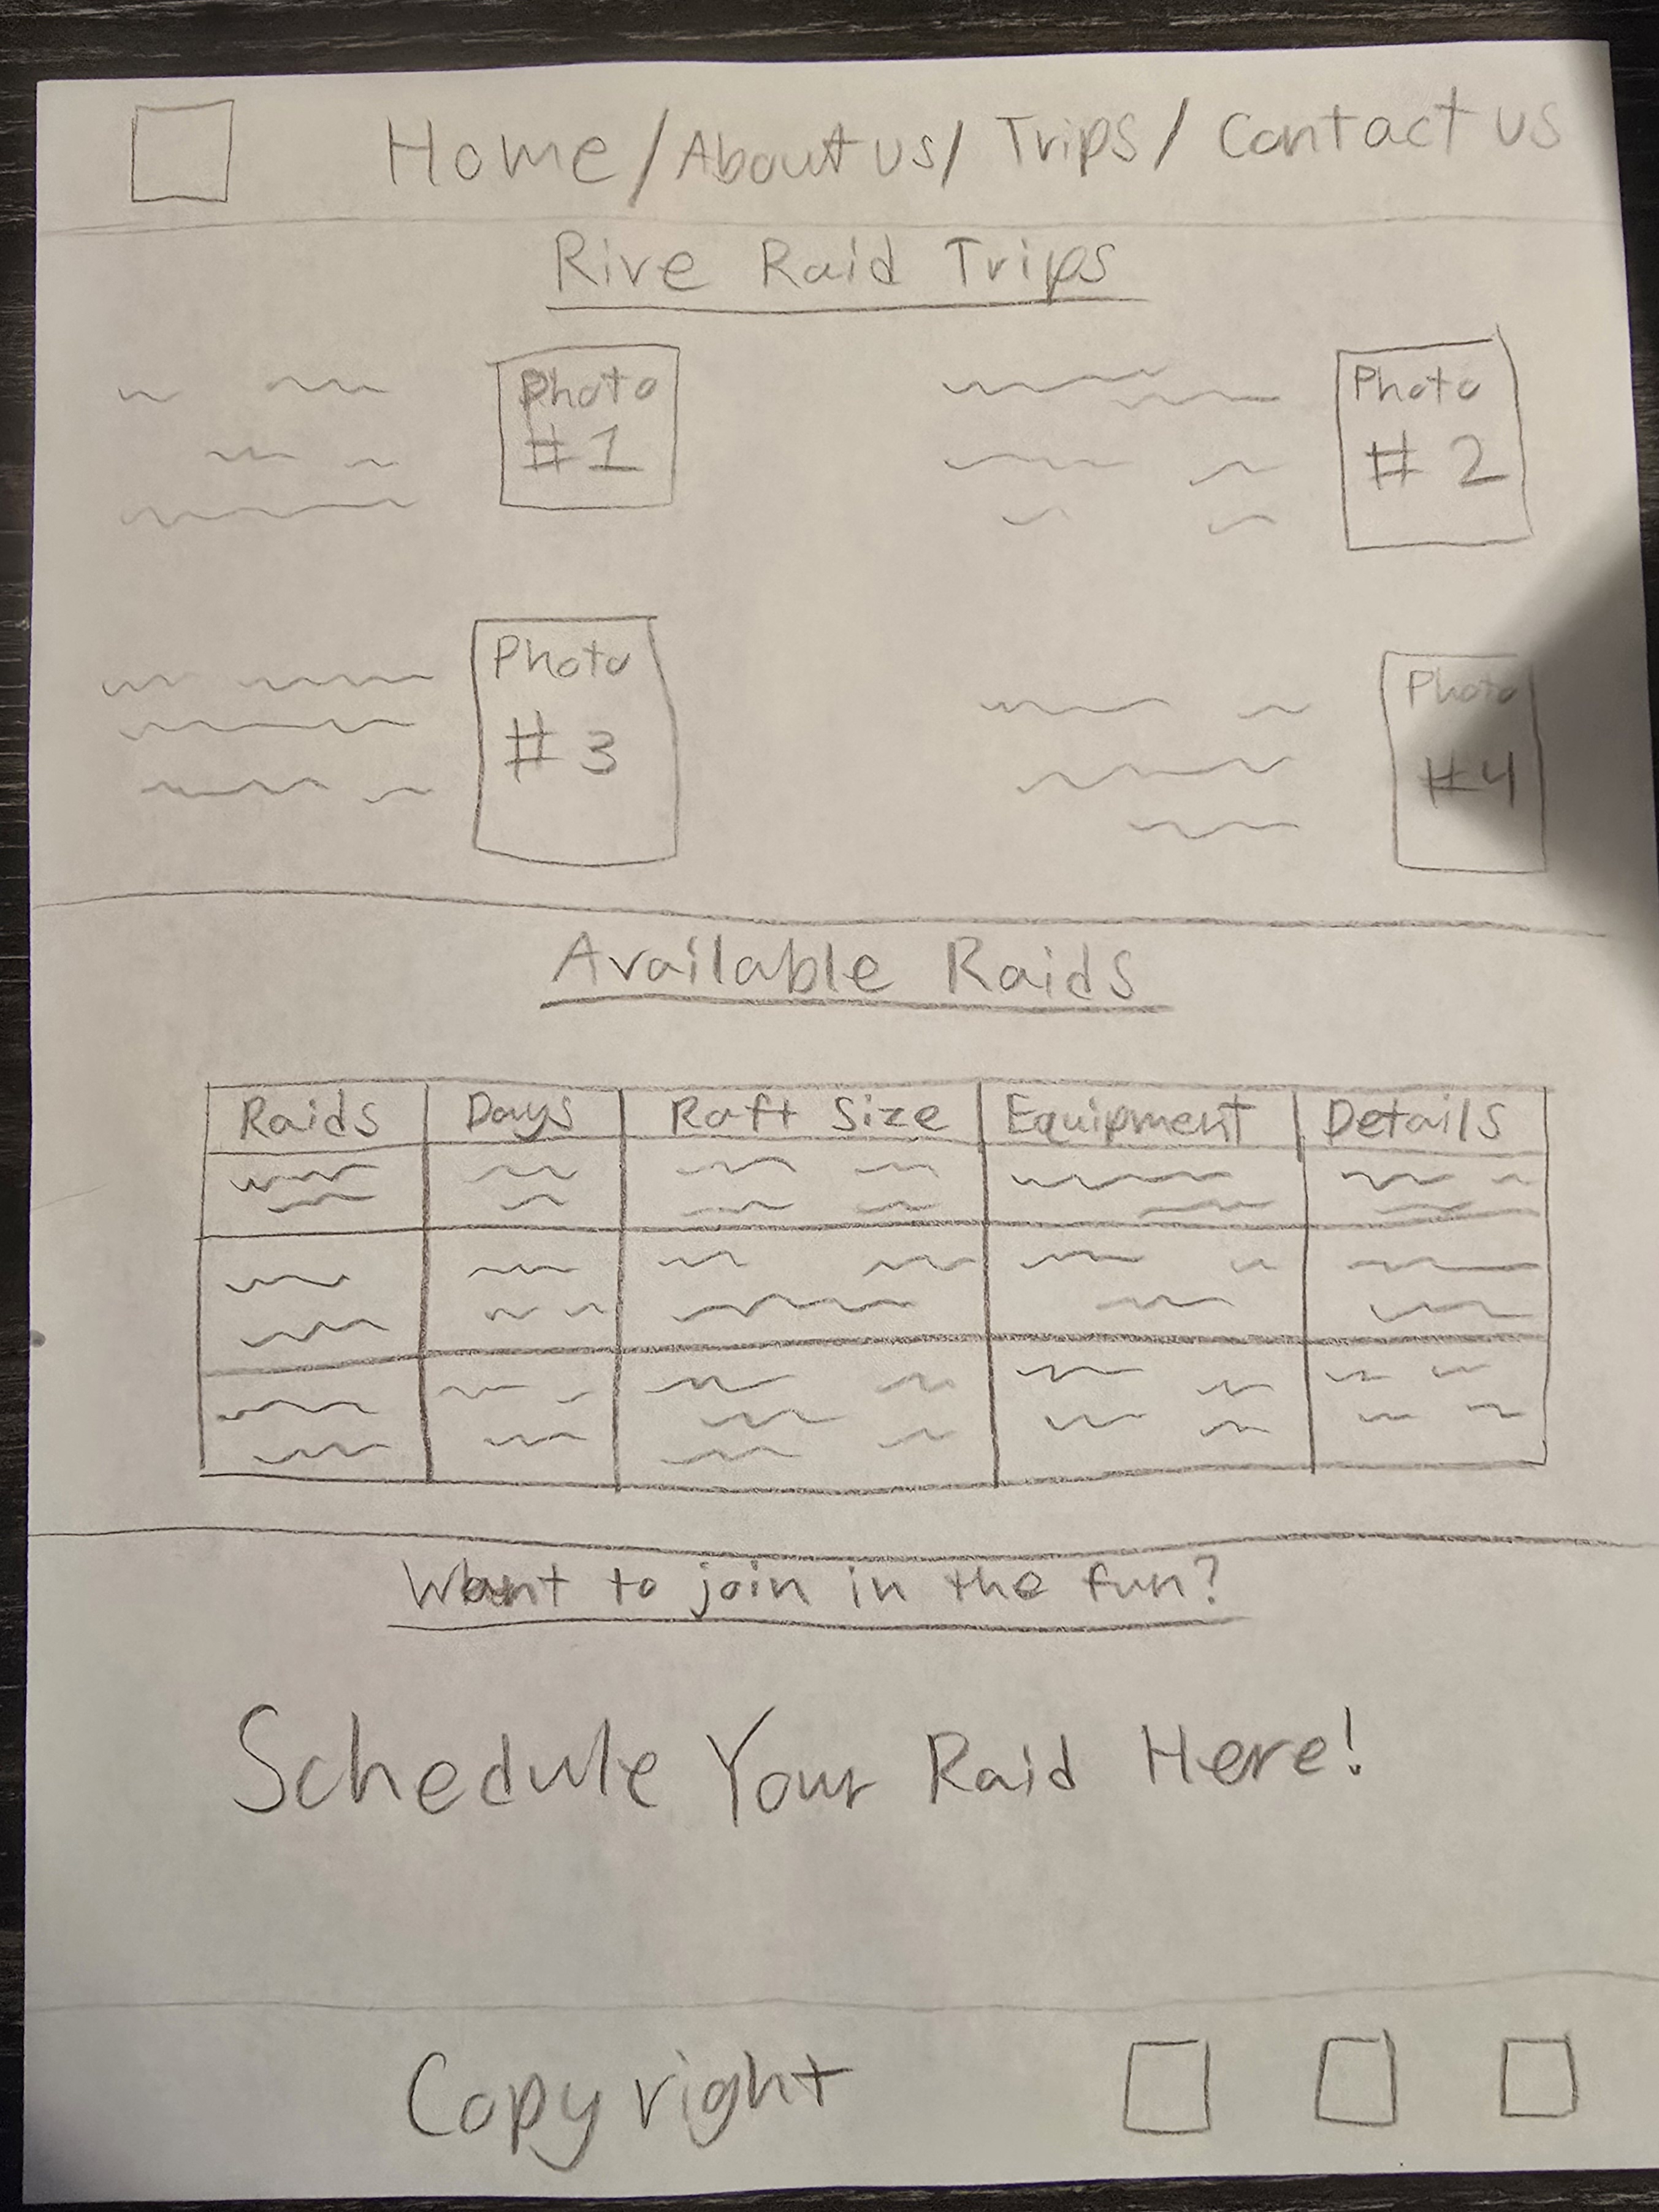 Home / About us / Trips / Contact us
Rive Raid Trips
Photo
#1
Photo
# 2
Photo
# 3
Photo
#4
Available Raids
Raids Days Raft Size Equipment Details
Want to join in the fun?
Schedule Your Raid Here!
Copyright